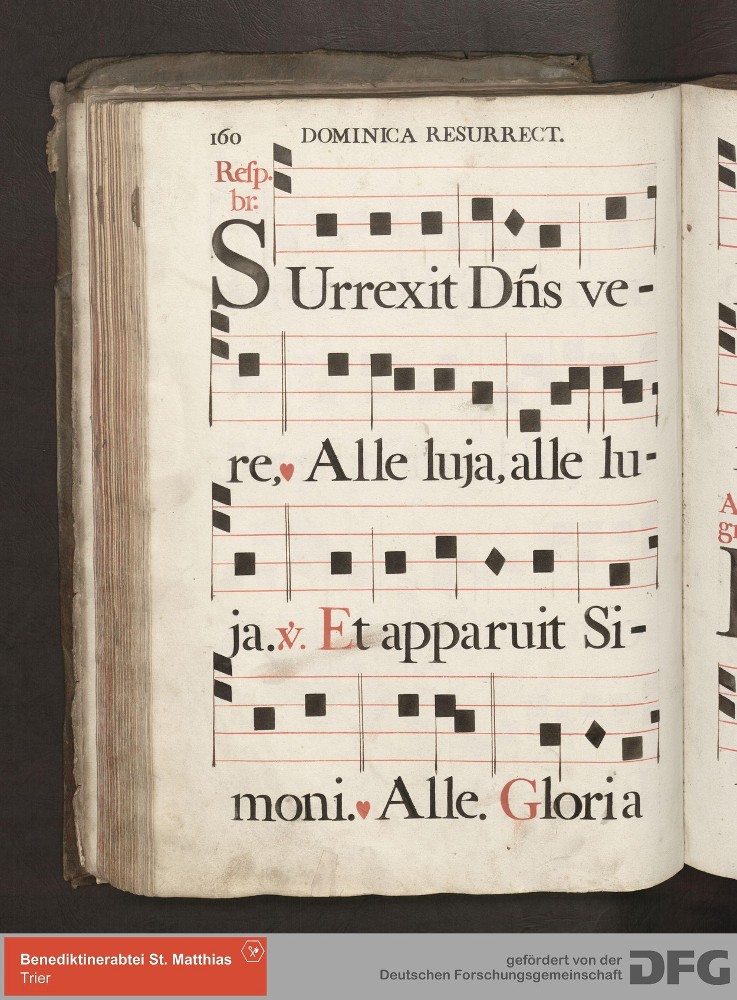 160 DOMINICA RESURRECT.
Reſp.
br:
SUrrexit Dñs ve-
re,♥ Alle luja, alle lu-
ja. ℣. Et apparuit Si-
moni.♥ Alle. Gloria
A
Benediktinerabtei St. Matthias
Trier
gefördert von der
Deutschen Forschungsgemeinschaft
DFG